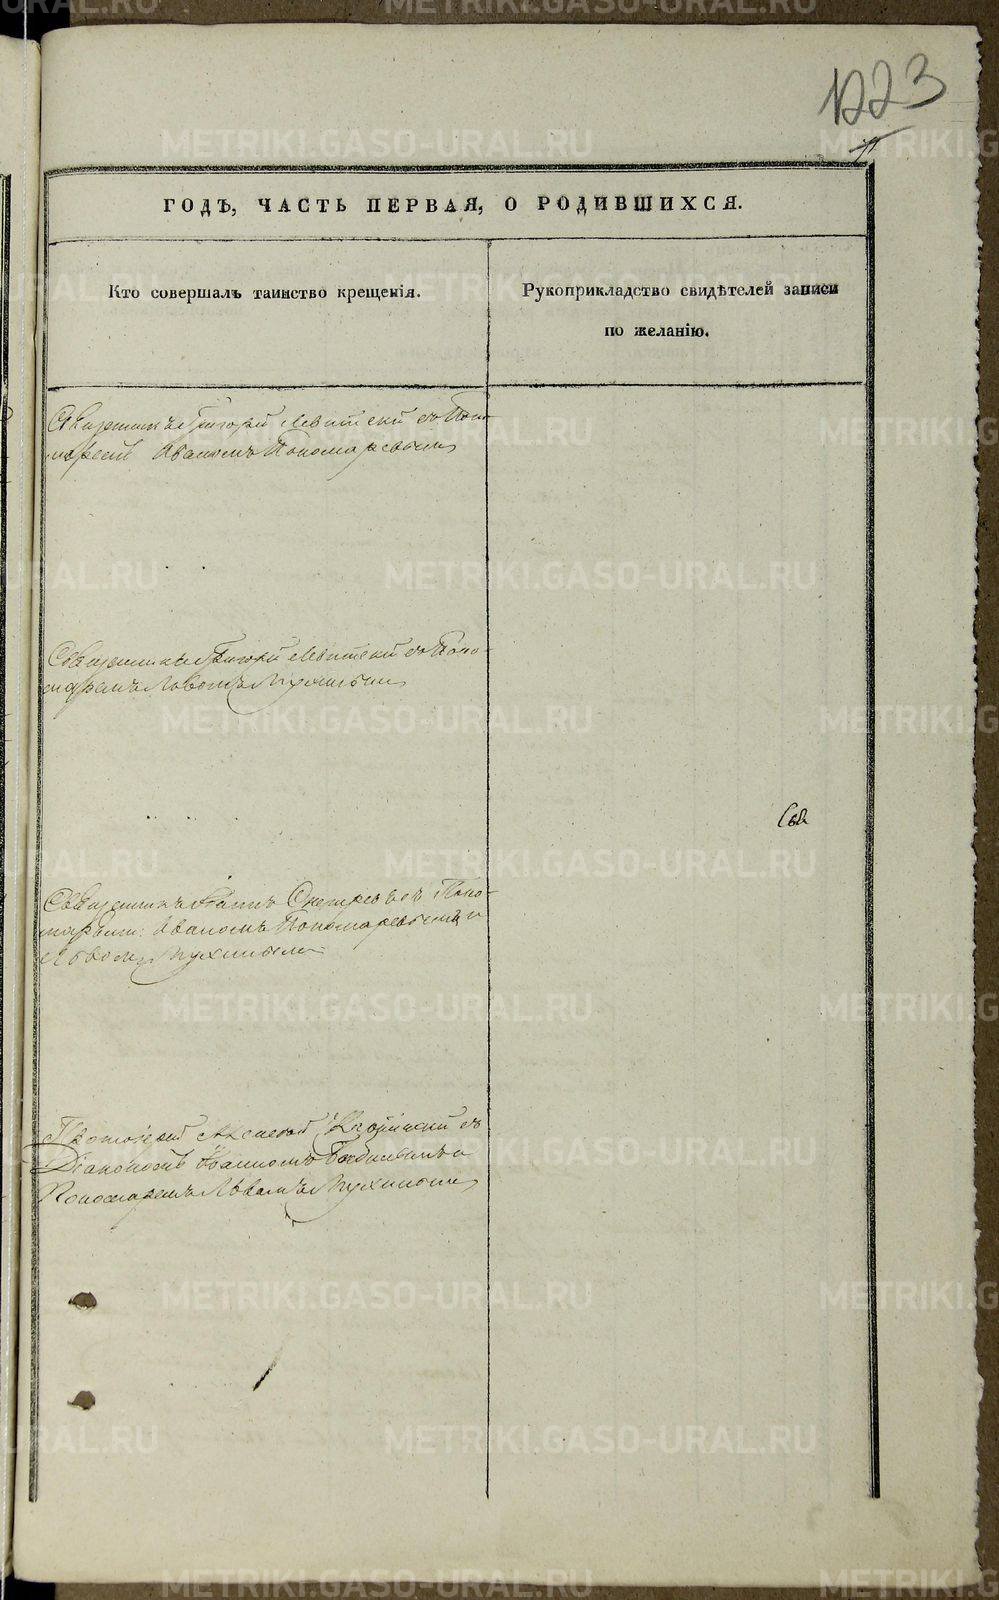 1223
ГОДЪ, ЧАСТЬ ПЕРВАЯ, О РОДИВШИХСЯ.
Кто совершалъ таинство крещенія.
Рукоприкладство свидѣтелей записи
по желанію.
Священникъ Григорій Левитскій съ Поно-
маремъ Иваномъ Пономаревымъ
Священникъ Григорій Левитскій съ Поно-
маремъ Львомъ Мухинымъ
Священникъ съ Поно-
марями: Иваномъ Пономаревымъ и
Львомъ Мухинымъ
Свя
Протоіерей Алексѣй съ
Діакономъ Іоанномъ и
Пономаремъ Львомъ Мухинымъ
METRIKI.GASO-URAL.RU